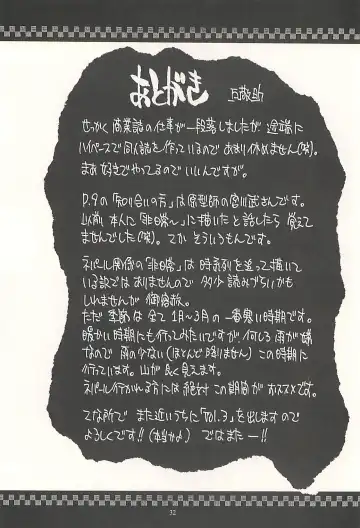 あとがき
せっかく商業誌の仕事が一段落しましたが途端に
ハイペースで同人誌を作っているのであまり休めません(笑)。
まあ好きでやってるのでいいんですが。
P.9の「知り合いの方」は原型師の宮川武さんです。
以前本人に「非日常〜」に描いたと話したら覚えて
ませんでした(笑)。てか そういうもんです。
ネパール関係の「非日常」は時系列を追って描いて
いる訳ではありませんので 多少読みづらいかも
しれませんが御容赦。
ただ 季節は全て1月〜3月の一番寒い時期です。
暖かい時期にも行ってみたいですが、何しろ雨が嫌
なので 雨の少ない(ほとんど降りません)この時期に
行っています。山が良く見えます。
ネパール行かれる方には絶対この期間がオススメです。
てな所で また近いうちに「Vol.3」を出しますので
よろしくです!!(本当かよ) ではまたー!!
32